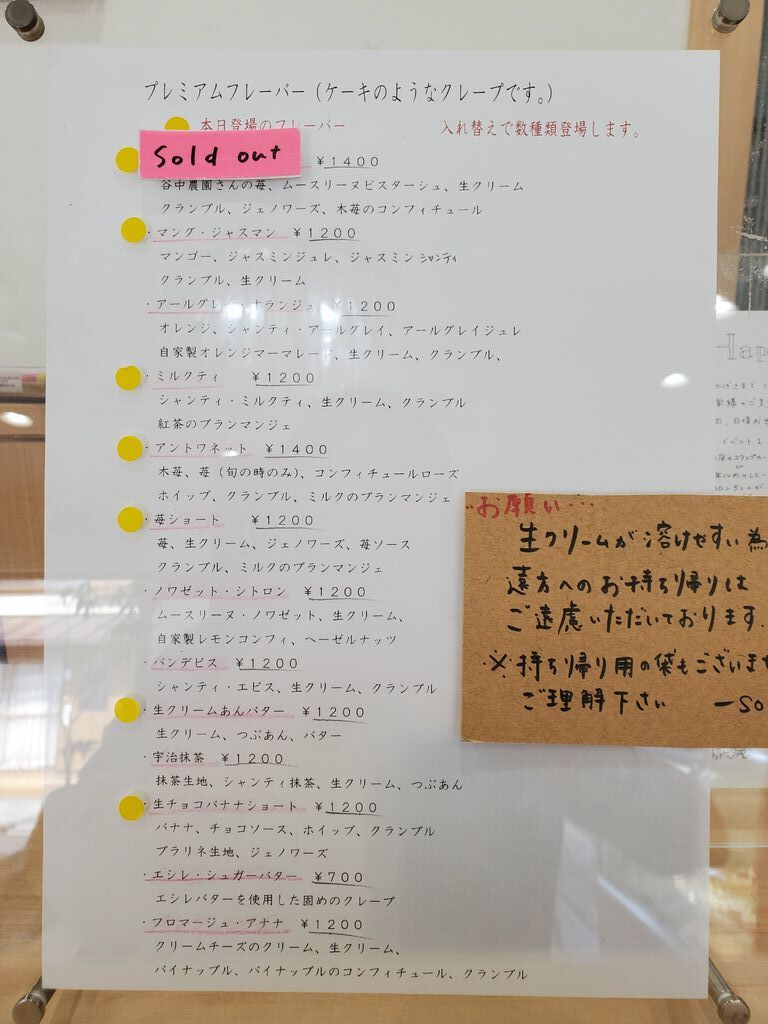 プレミアムフレーバー（ケーキのようなクレープです。）
本日登場のフレーバー 入れ替えで数種類登場します。
Sold out ￥1400
谷中農園さんの苺、ムースリーヌピスターシュ、生クリーム
クランブル、ジェノワーズ、木苺のコンフィチュール
・マング・ジャスマン ￥1200
マンゴー、ジャスミンジュレ、ジャスミンシャンティ
クランブル、生クリーム
・アールグレイ・オランジュ ￥1200
オレンジ、シャンティ・アールグレイ、アールグレイジュレ
自家製オレンジマーマレード、生クリーム、クランブル、
・ミルクティ ￥1200
シャンティ・ミルクティ、生クリーム、クランブル
紅茶のブランマンジェ
・アントワネット ￥1400
木苺、苺（旬の時のみ）、コンフィチュールローズ
ホイップ、クランブル、ミルクのブランマンジェ
・苺ショート ￥1200
苺、生クリーム、ジェノワーズ、苺ソース
クランブル、ミルクのブランマンジェ
・ノワゼット・シトロン ￥1200
ムースリーヌ・ノワゼット、生クリーム、
自家製レモンコンフィ、ヘーゼルナッツ
・パンデピス ￥1200
シャンティ・エピス、生クリーム、クランブル
・生クリームあんバター ￥1200
生クリーム、つぶあん、バター
・宇治抹茶 ￥1200
抹茶生地、シャンティ抹茶、生クリーム、つぶあん
・生チョコバナナショート ￥1200
バナナ、チョコソース、ホイップ、クランブル
プラリネ生地、ジェノワーズ
・エシレ・シュガーバター ￥700
エシレバターを使用した固めのクレープ
・フロマージュ・アナナ ￥1200
クリームチーズのクリーム、生クリーム、
パイナップル、パイナップルのコンフィチュール、クランブル
お願い…
生クリームが溶けやすい為
遠方へのお持ち帰りは
ご遠慮いただいております。
※持ち帰り用の袋もございませ
ご理解下さい ーso
Hap